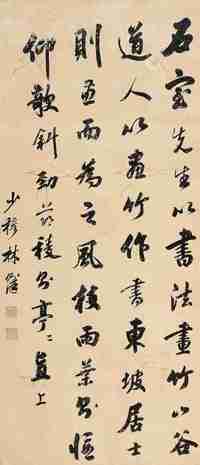 石室先生以書法畫竹山谷
道人以畫竹作書東坡居士
則並而為之風枝雨葉則偃
仰欹斜勁節稜則亭〻直上
少穆林則徐